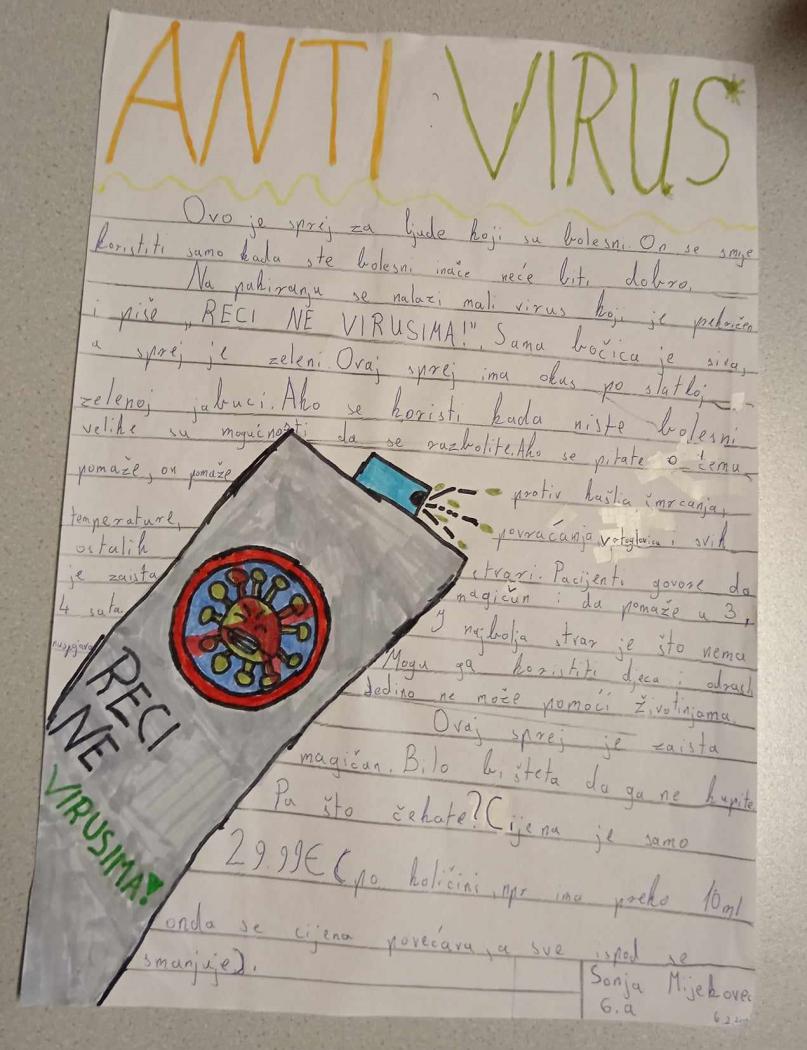 ANTI VIRUS
Ovo je sprej za ljude koji su bolesni. On se smije
koristiti samo kada ste bolesni inače neće biti dobro.
Na pakiranju se nalazi mali virus koji je prekrižen
i piše „RECI NE VIRUSIMA!". Sama bočica je siva,
a sprej je zeleni. Ovaj sprej ima okus po slatkoj
zelenoj jabuci. Ako se koristi kada niste bolesni
velike su mogućnosti da se razbolite. Ako se pitate o čemu
pomaže, on pomaže protiv kašlja šmrcanja,
temperature, povraćanja, vrtoglavice i svih
ostalih stvari. Pacijenti govore da
je zaista magičan i da pomaže u 3,
4 sata. I najbolja stvar je što nema
nuspojava Mogu ga koristiti djeca i odrasli
Jedino ne može pomoći životinjama.
Ovaj sprej je zaista
magičan. Bilo bi šteta da ga ne kupite
Pa što čekate? Cijena je samo
29.99€ (po količini, npr ima preko 10ml
onda se cijena povećava, a sve ispod se
smanjuje).
RECI
NE
VIRUSIMA!
Sonja Mijekovec
6.a